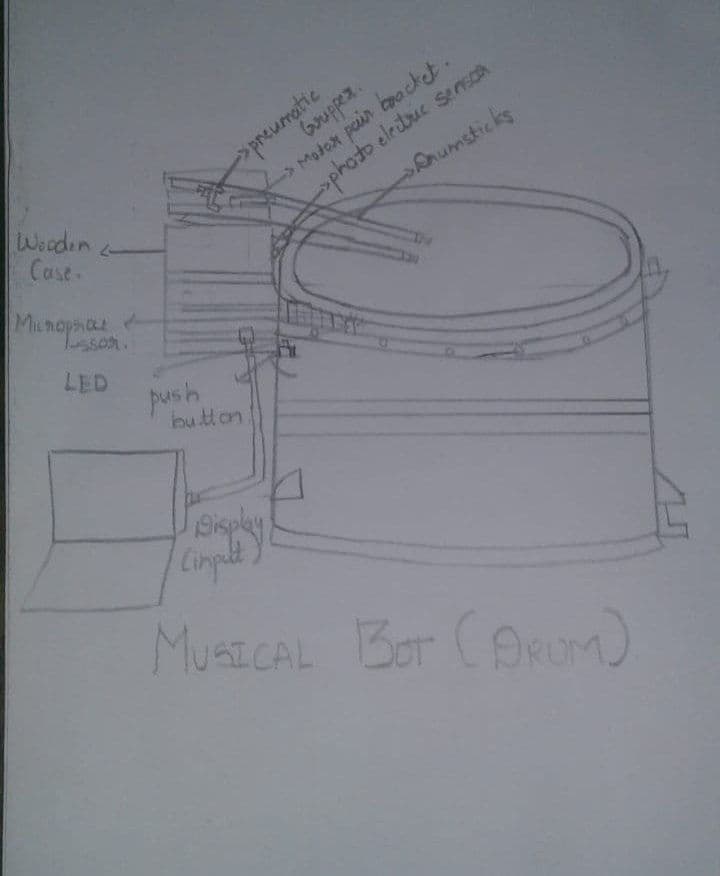 pneumatic
Gripper.
Motor pair bracket.
photo electric sensor
Drumsticks
Wooden
Case.
Microproce
ssor.
LED
push
button
Display
(input)
MUSICAL BOT (DRUM)